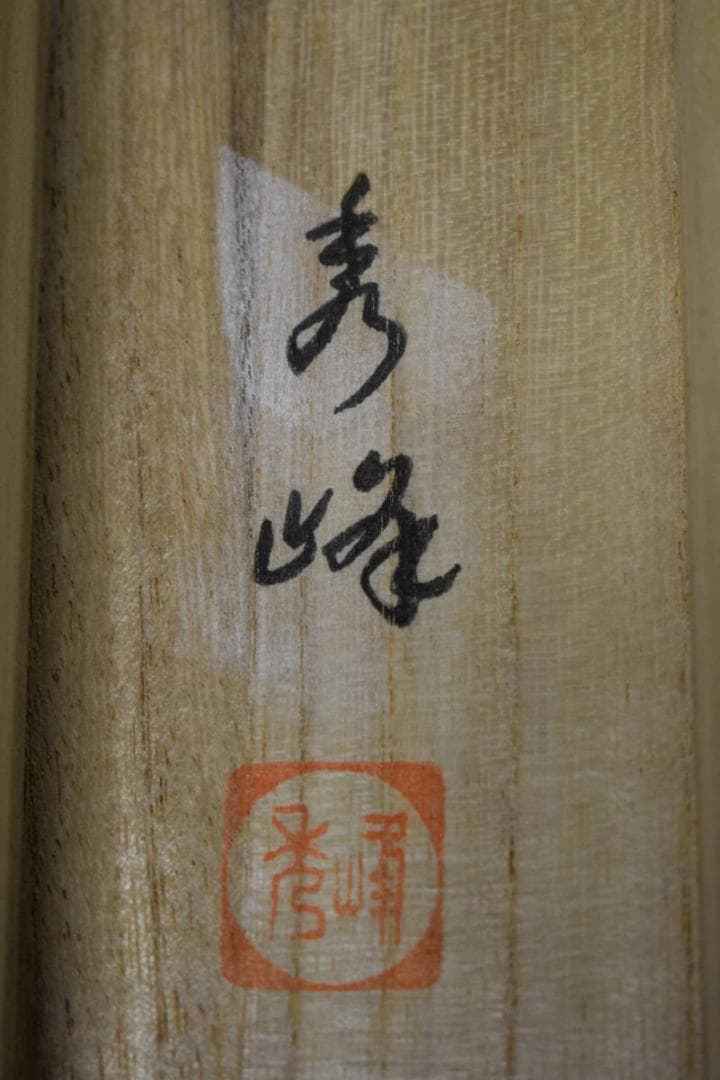 秀
峰
秀峰